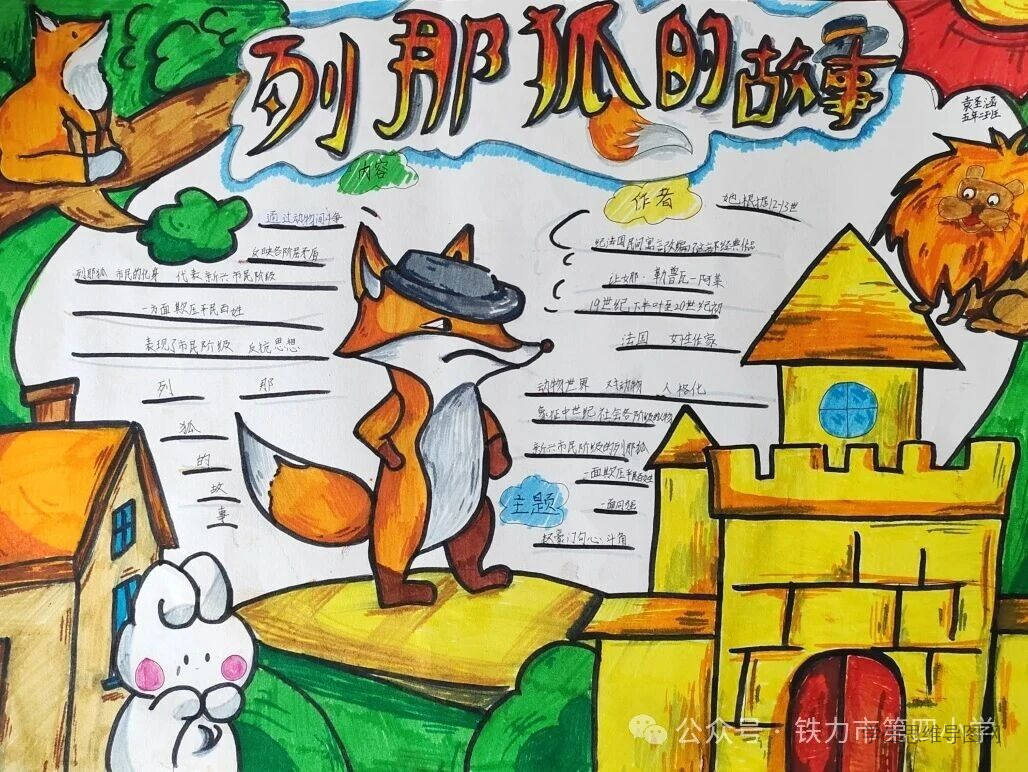 列那狐的故事
袁至涵
五年二班
内容
通过动物间斗争
反映各阶层矛盾
列那狐 市民的化身 代表新兴市民阶级
一方面欺压平民百姓
表现了市民阶级 反抗思想
列 那
狐
的
故
事
作者
她根据12-13世
纪法国民间寓言改编了这部经典作品
让娜·勒鲁瓦-阿莱
19世纪下半叶至20世纪初
法国 女性作家
动物世界 对动物 人格化
象征中世纪社会各阶级的人物
新兴市民阶级的列那狐
一面欺压平民百姓
主题
一面同强
权豪门勾心斗角
公众号·铁力市第四小学
思维导图网